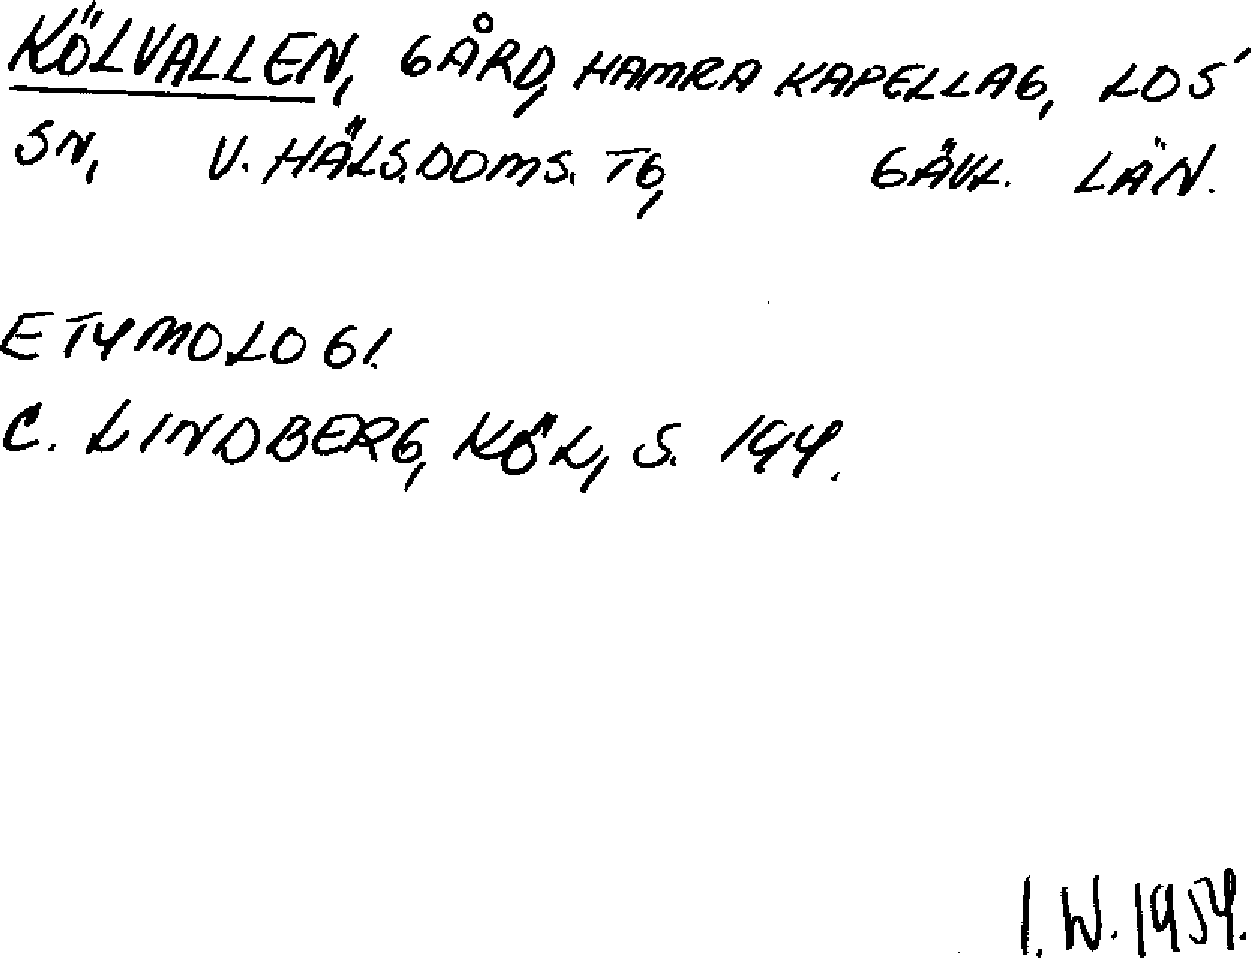 KÖLVALLEN, GÅRD, HAMRA KAPELLAG, LOS'
SN, V. HÄLS. DOMS. TG, GÄVL. LÄN.
ETYMOLOGI.
C. LINDBERG, KÖL, S. 194.
I. W. 1954.